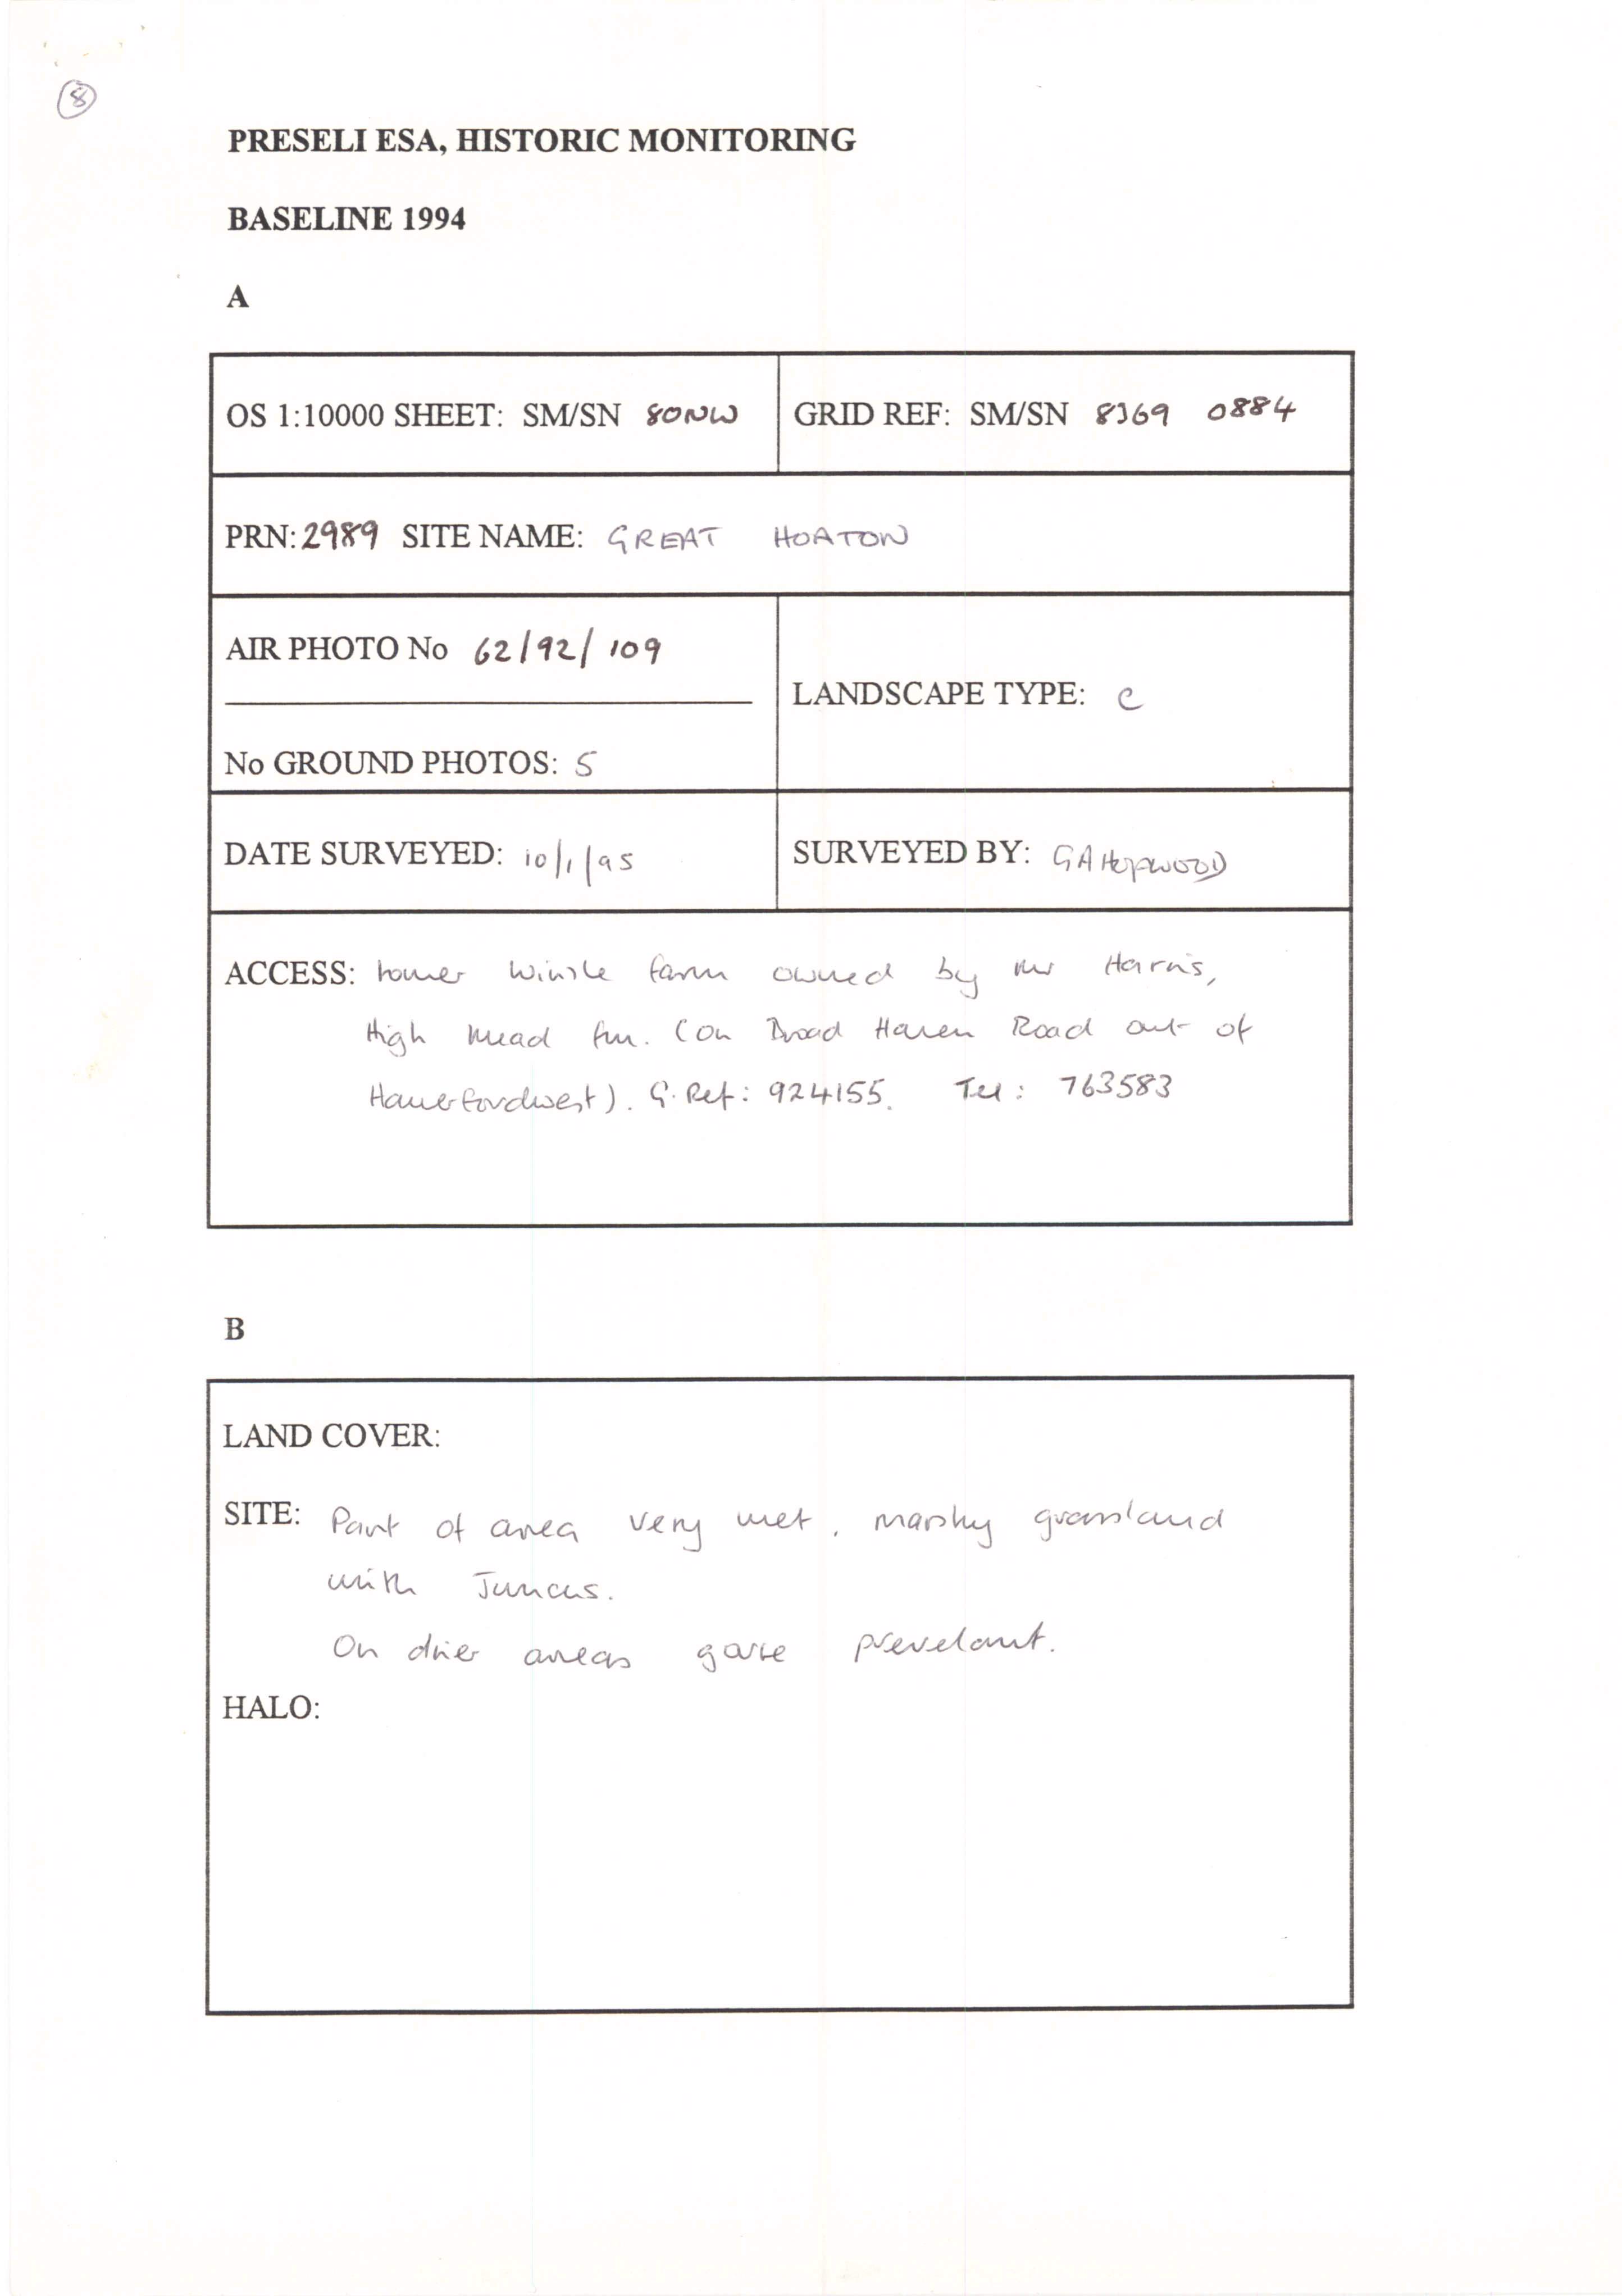 8
PRESELI ESA, HISTORIC MONITORING
BASELINE 1994
A
OS 1:10000 SHEET: SM/SN 80NW
GRID REF: SM/SN 8369 0884
PRN: 2989 SITE NAME: GREAT HOATON
AIR PHOTO No 62/92/109
LANDSCAPE TYPE: C
No GROUND PHOTOS: 5
DATE SURVEYED: 10/1/95
SURVEYED BY: GAHopwood
ACCESS: Lower Winsle farm owned by Mr Harris,
High Mead fm. (on Broad Haven Road out of
Haverfordwest). G. Ref: 924155. Tel: 763583
B
LAND COVER:
SITE: Part of area very wet, marshy grassland
with Juncus.
On drier areas gorse prevelant.
HALO: